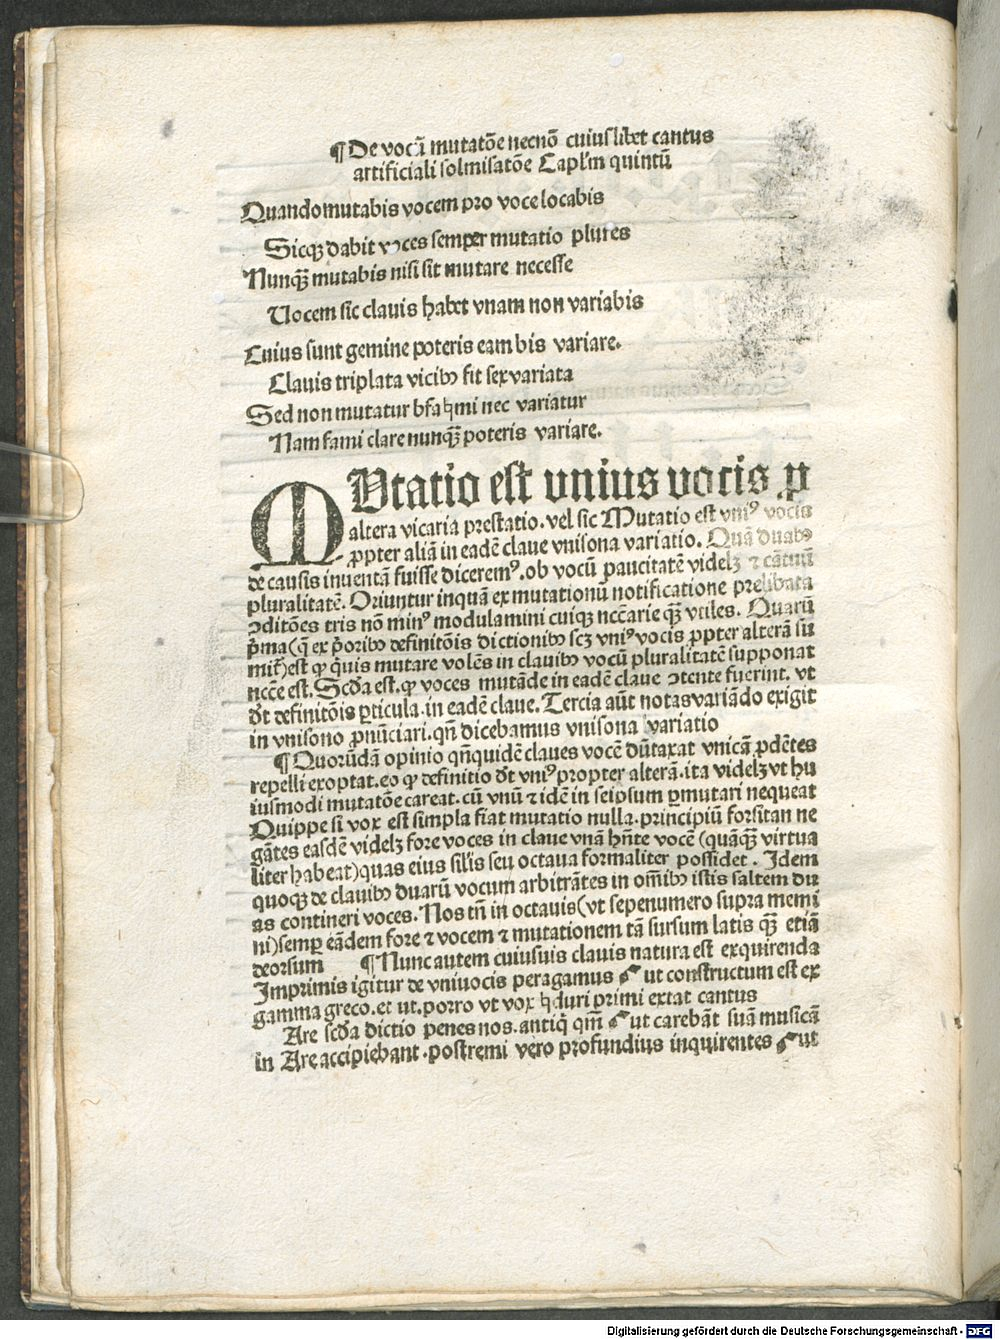 ¶ De vocū mutatōe necnō cuiuslibet cantus
artificiali solmisatōe Caplʼm quintū
Quando mutabis vocem pro voce locabis
Sicq̨ dabit voces semper mutatio plures
Nunq̄ȝ mutabis nisi sit mutare necesse
Vocem sic clauis habet vnam non variabis
Cuius sunt gemine poteris eam bis variare.
Clauis triplata vicibꝰ fit sex variata
Sed non mutatur bfa♮mi nec variatur
Nam fami clare nunq̄ȝ poteris variare.
MVtatio est vnius vocis ꝓ
altera vicaria prestatio. vel sic Mutatio est vniꝰ vocis
ꝓpter aliā in eadē claue vnisona variatio. Quā duabꝰ
de causis inuentā fuisse diceremꝰ. ob vocū paucitatē videlȝ ⁊ cātuū
pluralitatē. Oriuntur inquā ex mutationū notificatione prelibata
ꝯditōes tris nō minꝰ modulamini cuiqȝ nccārie q̄ȝ vtiles. Quarū
p̄ma (q̄ ex p̄oribꝰ definitōis dictionibꝰ scȝ vniꝰ vocis ꝓpter alterā su
mit̄) est ꝙ quis mutare volēs in clauibꝰ vocū pluralitatē supponat
nccē est. Scd̄a est. ꝙ voces mutāde in eadē claue ꝯtente fuerint. vt
dt̄ definitōis ꝑticula. in eadē claue. Tercia aūt notas variādo exigit
in vnisono ꝓnūciari. qn̄ dicebamus vnisona variatio
¶ Quorūdā opinio qn̄quidē claues vocē dūtaxat vnicā ꝓdētes
repelli exoptat. eo ꝙ definitio dt̄ vniꝰ propter alterā. ita videlȝ vt hu
iusmodi mutatōe careat. cū vnū ⁊ idē in seipsum ꝑmutari nequeat
Quippe si vox est simpla fiat mutatio nulla. principiū forsitan ne
gātes easdē videlȝ fore voces in claue vnā hn̄te vocē (quāq̄ȝ virtua
liter habeat) quas eius sil̄is seu octaua formaliter possidet. Idem
quoqȝ de clauibꝰ duarū vocum arbitrātes in om̄ibꝰ istis saltem du
as contineri voces. Nos tn̄ in octauis (vt sepenumero supra memi
ni) semꝑ eādem fore ⁊ vocem ⁊ mutationem tā sursum latis q̄ȝ etiā
deorsum ¶ Nunc autem cuiusuis clauis natura est exquirenda
Imprimis igitur de vniuocis peragamus Γut constructum est ex
gamma greco. et ut. porro vt vox ♮duri primi extat cantus
Are scd̄a dictio penes nos. antiq̄ qm̄ Γut carebāt suā musicā
in Are accipiebant. postremi vero profundius inquirentes Γut
Digitalisierung gefördert durch die Deutsche Forschungsgemeinschaft - DFG